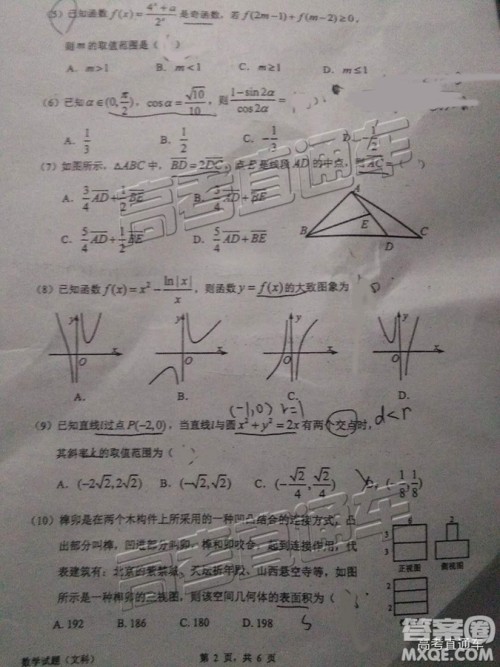 (5) 已知函数 f(x)=(4^x+a)/2^x 是奇函数，若 f(2m-1)+f(m-2)≥0，
则 m 的取值范围是（ ）
A. m>1 B. m<1 C. m≥1 D. m≤1
(6) 已知 α∈(0, π/2)，cosα=√10/10，则 (1-sin2α)/cos2α=
A. 1/3 B. 1/2 C. -1/3 D. -1/2
(7) 如图所示，△ABC 中，BD=2DC，点 E 是线段 AD 的中点，则 AC=（ ）
A. 3/4 AD+1/2 BE B. 3/4 AD+BE
C. 5/4 AD+1/2 BE D. 5/4 AD+BE
A
B E D C
(8) 已知函数 f(x)=x²-ln|x|/x，则函数 y=f(x) 的大致图象为
y y y y
O x O x O x O x
A. B. C. D.
(-1,0) r=1
(9) 已知直线l过点 P(-2,0)，当直线l与圆 x²+y²=2x 有两个交点时， d<r
其斜率k的取值范围为（
A. (-2√2,2√2) B. (-√2,√2) C. (-√2/4,√2/4) D. (-1/8,1/8)
(10) 榫卯是在两个木构件上所采用的一种凹凸结合的连接方式，凸
出部分叫榫，凹进部分叫卯，榫和卯咬合，起到连接作用，代
表建筑有：北京的紫禁城、天坛祈年殿、山西悬空寺等，如图
所示是一种榫卯的三视图，则该空间几何体的表面积为（
A. 192 B. 186 C. 180 D. 198
正视图 侧视图
数学试题（文科） 第 2 页，共 6 页
高考直通车
高考直通车
高考直通车
答案圈
MXQE.COM